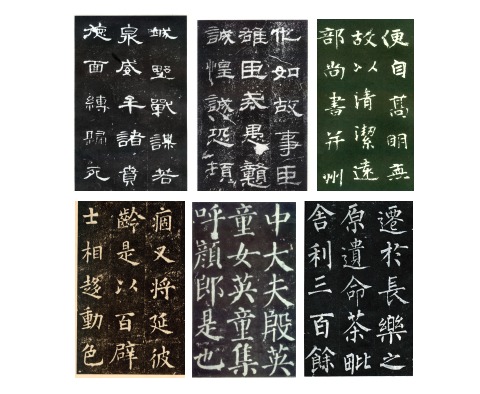 城野戰謀若
泉威牟諸賁
德面縛歸死
化如故事臣
雄臣戒愚戇
誠惶誠恐頓
便自髙明無
故以清潔遠
部尚書并州
痼又將延彼
齡是以百辟
士相趍動色
中大夫殷英
童女英童集
呼顏郎是也
遷於長樂之
原遺命茶毗
舍利三百餘